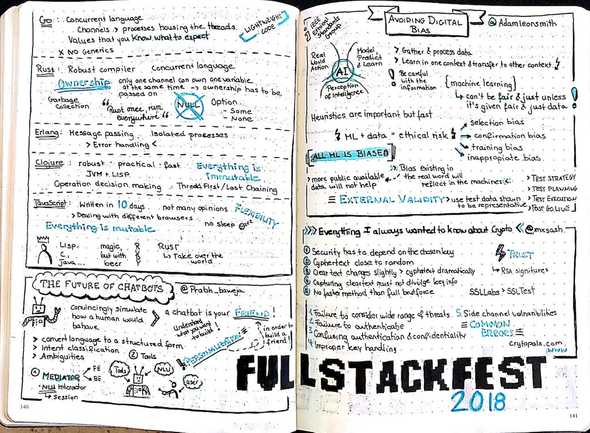 Go: Concurrent language
Channels > processes housing the threads
Values that you Know what to expect
x No generics
LIGHTWEIGHT
CODE
Rust: Robust compiler Concurrent language
Ownership only one channel can own one variable
at the same time → ownership has to be
passed on
Garbage
Collection
"Rust mee, run
everywhere"
NULL
Option
- Some
- None
Erlang: Message passing Isolated processes
> Error handling <
Clojure: robust · practical · fast
JVM + LISP
Everything is
immutable
Operation decision making Thread First/Last Chaining
JavaScript: Written in 10 days · not many opinions
FLEXIBILITY
> Dealing with different browsers
no sleep
Everything is mutable
Lisp
C,
Java...
magic,
but with
beer
R
RUST
↳ Take over the
world
THE FUTURE OF CHATBOTS
@Prabh_baweja
convincingly simulate
how a human would
behave
a chatbot is your FRIEND
Understand
what you want
to build
PERSONIFICATION
in order to
build a
friend!
> convert language to a structured form
> Intent classification
> Ambiguities
② Tools
④ MEDIATOR
FE
BE
· NLU Interactor
↳ Session
Tools
NLU
USER
140
AVOIDING DIGITAL
BIAS
@Adamleonsmith
IEEE
Ethical
standards
group
Real
World
Action
Model
Predict
& Learn
AI
Perception
of Intelligence
> Gather & process data
> Learn in one context & transfer to other context
Be careful
with the
information
{machine learning}
↳ can't be fair & just unless
it's given fair & just data
Heuristics are important but fast
ML + data = ethical risk
→ selection bias
→ confirmation bias
→ training bias
→ inappropiate bias
ALL ML IS BIASED
> more public available
data will not help
Bias existing in
the real word will
reflect in the machines
EXTERNAL VALIDITY
→ use test data shown
to be representative
> TEST STRATEGY
> TEST PLANNING
> TEST EXECUTION
> TEST GO LIVE
>>> Everything I always wanted to know about Crypto < @mxsash
① Security has to depend on the chosen key
② Cyphertext close to random
③ Cleartext changes slightly > cyphertext dramatically
④ Capturing cleartext must not divulge key info
⑤ No faster method than full bruteforce
TRUST
↳ RSA signature
SSL Labs > SSL Test
1. Failure to consider wide range of threats
2. Failure to authenticate
3. Confusing authentication & confidentiality
4. Improper key handling
5. Side channel vulnerabilities
COMMON
ERRORS
cryptopals.com
FULLSTACKFEST
2018
141